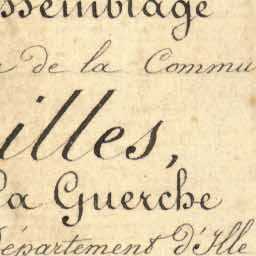 ssemblage
de la Commu
illes,
La Guerche
Département d'Ille